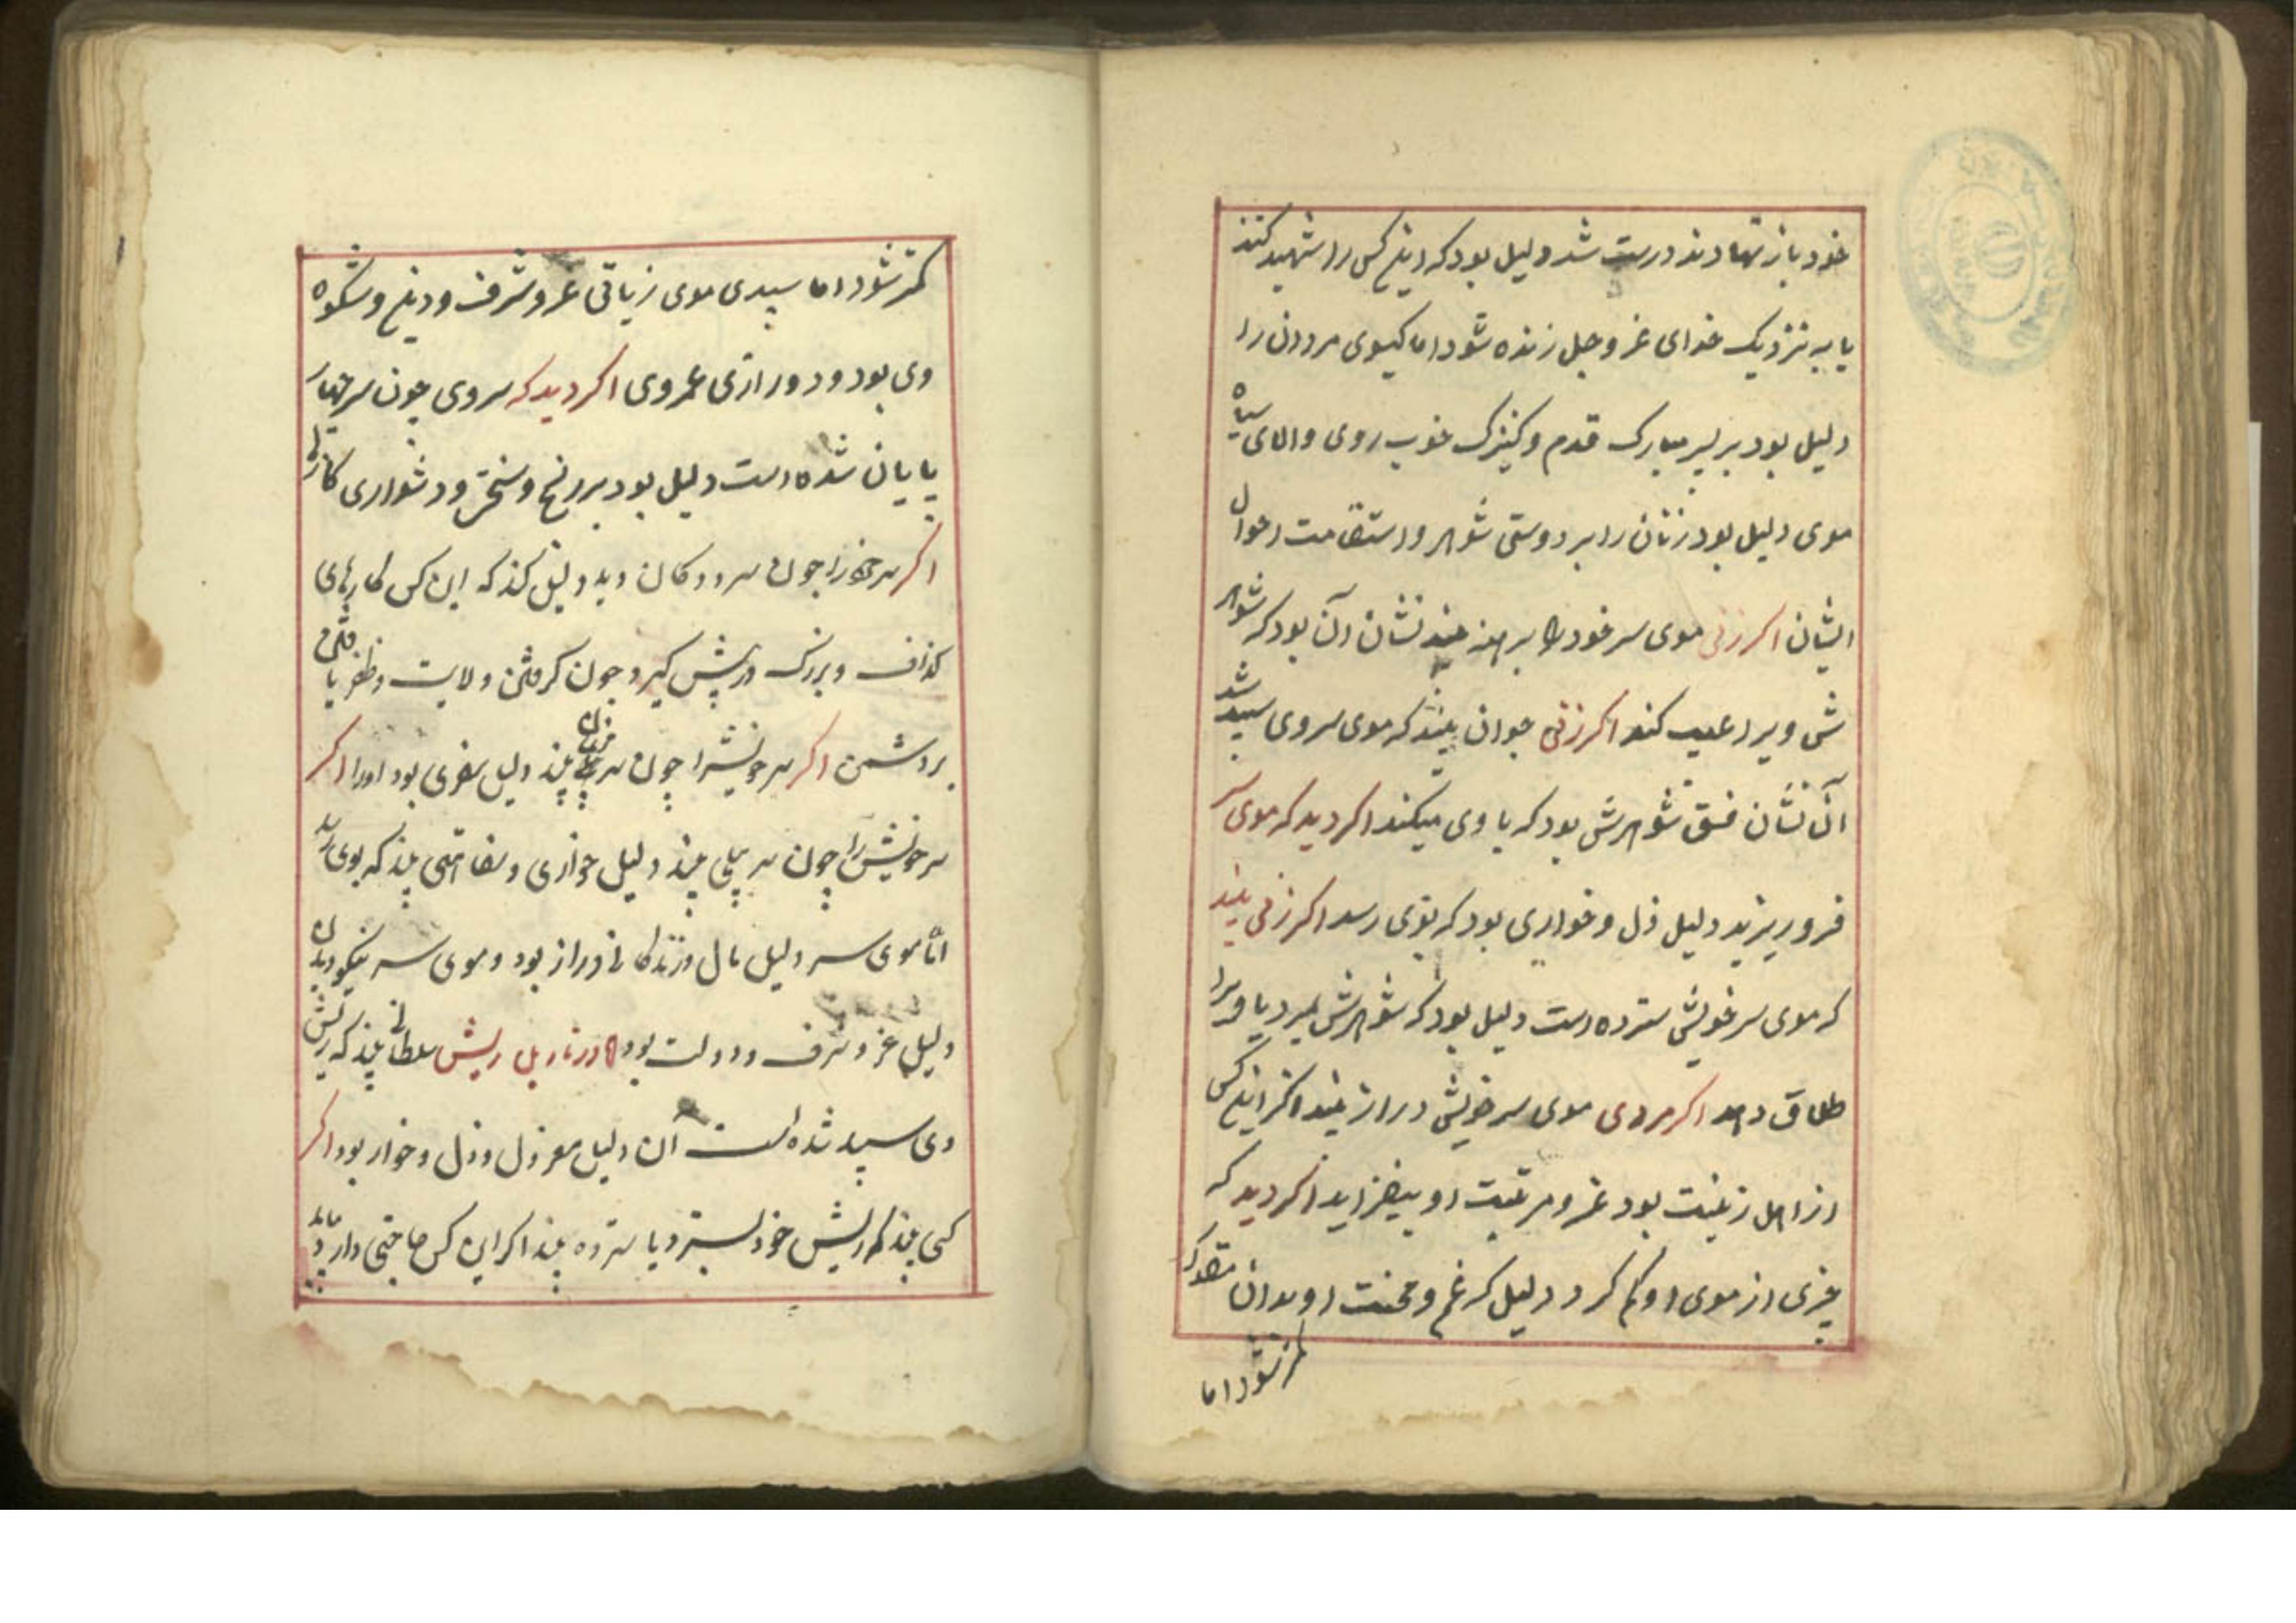 خود باز نهادند درست شد دلیل بود که اینکس را شهید کنند
یا به نزدیک خدای عز و جل زنده شود اما کیسوی مردان را
دلیل بود بر پسر مبارک قدم و کنیزک خوب روی و الای سیاه
موی دلیل بود زنان را بر دوستی شوهر و استقامت احوال
ایشان اکر زنی موی سر خود را برهنه بیند نشان آن بود که شوهر
ش ویرا عیب کند اکر زنی جوان بیند که موی سر وی سپید شد
آن نشان فسق شوهرش بود که با وی میکند اکر دید که موی سر
فرو ریزید دلیل ذل و خواری بود که بوی رسد اکر زنی بیند
که موی سر خویش سترده است دلیل بود که شوهرش بمیرد یا ویرا
طلاق دهد اکر مردی موی سر خویش دراز بیند اکر اینکس
از اهل زینت بود عز و مرتبت او بیفزاید اکر دید که
چیزی از موی او کم کرد دلیل که غم و محنت او بدان
کمتر شود اما
کمتر شود اما سپیدی موی زیاتی عز و شرف و دین و شکوه
وی بود و درازی عمر وی اکر دید که سر وی چون سر
پایان شده است دلیل بود بر رنج و سختی و دشواری کارها
اکر سر خود را چون سر ددکان دید دلیل کند که این کس کارهای
کذاف و بزرک در پیش کیرد چون کرفتن ولایت و ظفر یافتن
بر دشمن اکر سر خویش را چون سر مرغان بیند دلیل سفری بود او را اکر
سر خویش را چون سر پیلی بیند دلیل خواری و بیند که بوی رسد
اما موی سر دلیل مال و زندکانی دراز بود و موی سر نیکو دیدن
دلیل عز و شرف و دولت بود در تاویل ریش سلطانی بیند که ریش
وی سپید شده است آن دلیل معزول و ذل و خوار بود اکر
کسی بیند که ریش خود بسترد یا سترده بیند اکر این کس حاجتی دارد